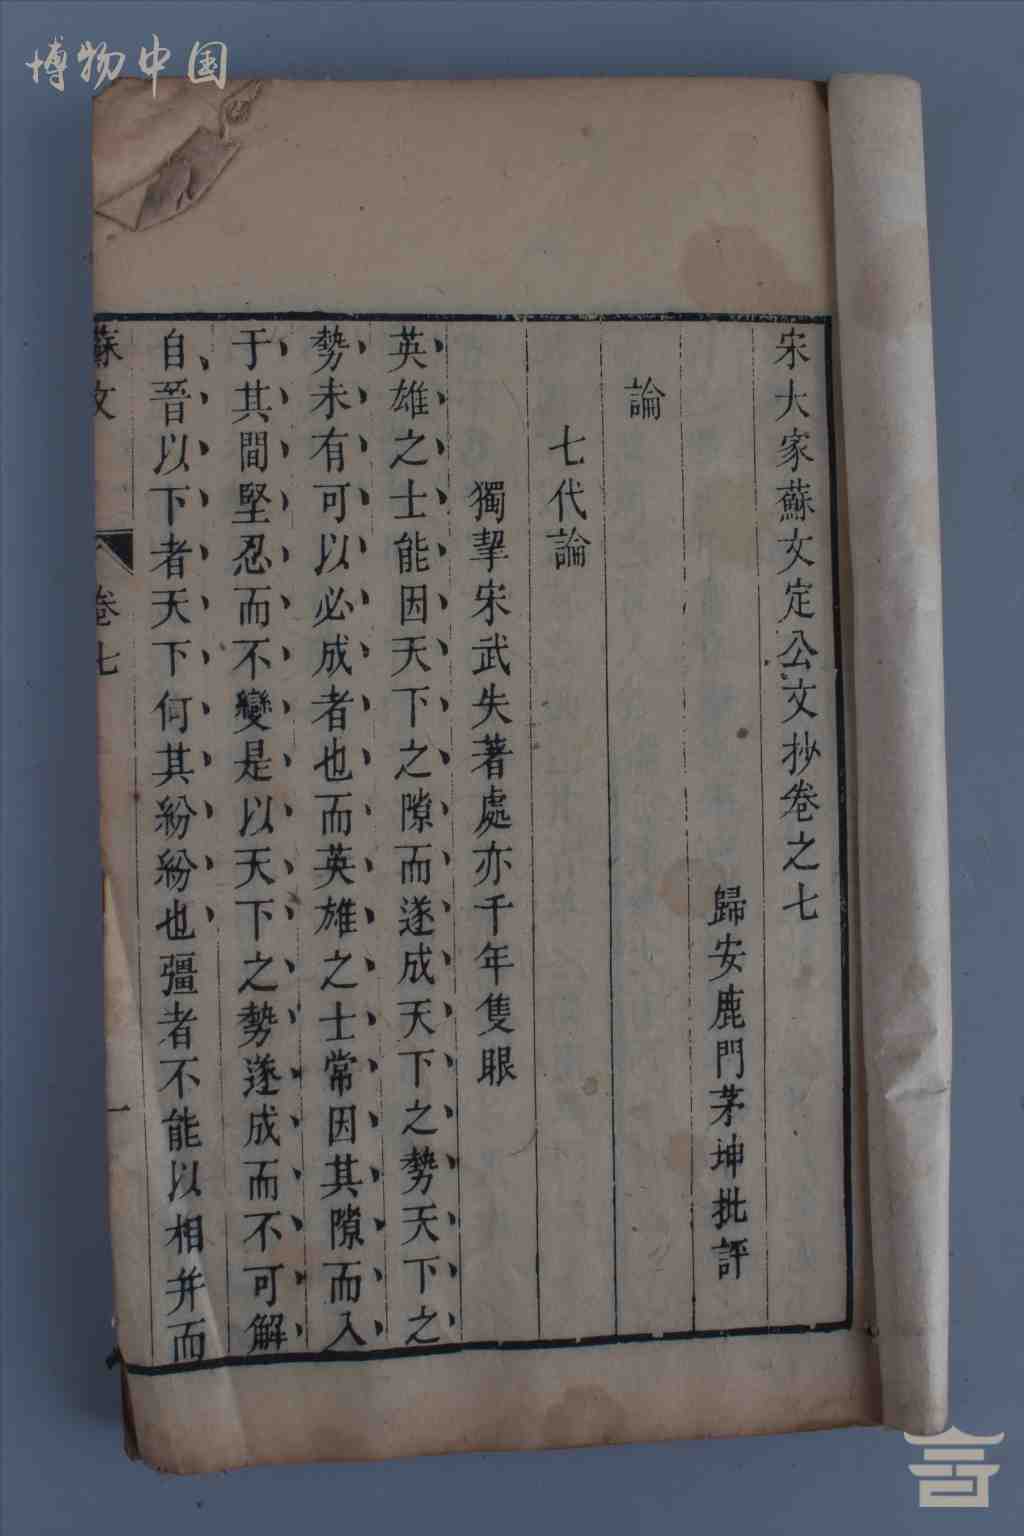 博物中国
宋大家蘇文定公文抄卷之七
歸安鹿門茅坤批評
論
七代論
獨挈宋武失著處亦千年隻眼
英雄之士能因天下之隙而遂成天下之勢天下之
勢未有可以必成者也而英雄之士常因其隙而入
于其間堅忍而不變是以天下之勢遂成而不可解
自晉以下者天下何其紛紛也彊者不能以相并而
蘇文 卷七 一